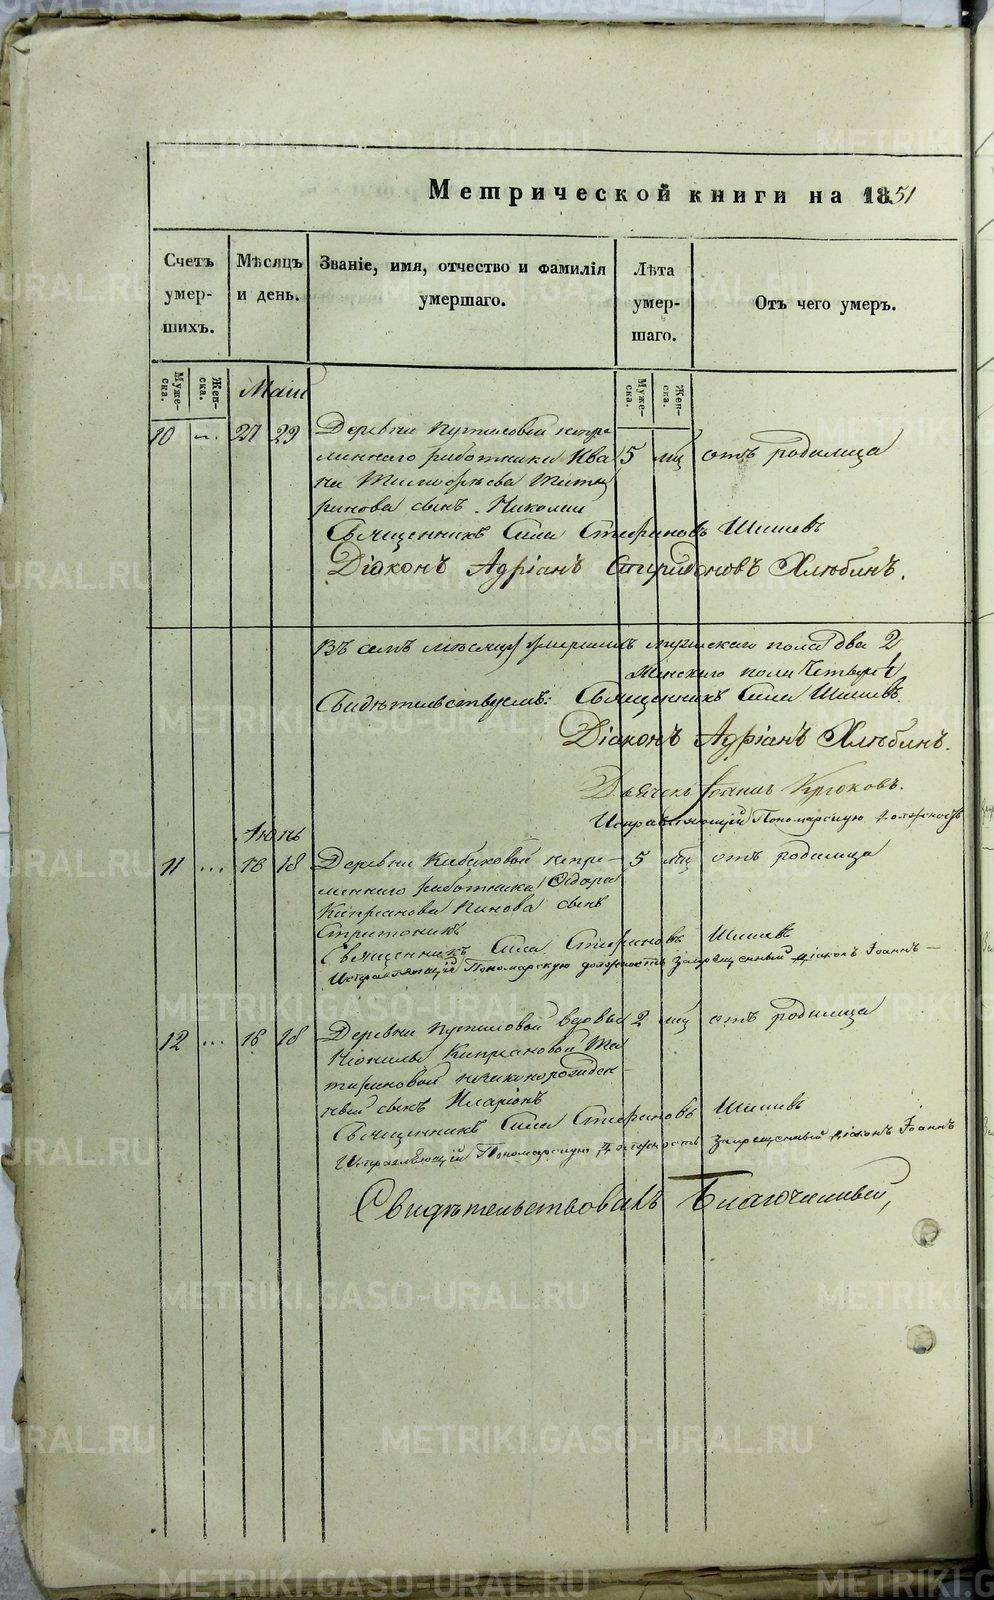 Метрической книги на 1851
Счетъ умершихъ.
Мѣсяцъ и день.
Званіе, имя, отчество и фамилія умершаго.
Лѣта умершаго.
Отъ чего умеръ.
Мужеска.
Женска.
Маій
Мужеска.
Женска.
10 27 29 Деревни непре
меннаго работника Ива 5 мц отъ родимца
на Тимофѣева
сынъ Николай
Священникъ Сила Стефановъ Шишевъ
Діаконъ Адріанъ Спиридоновъ Хлѣбинъ.
Въ семъ мѣсяцѣ умершихъ мужескаго пола два 2
Женскаго пола Четыре
Свидѣтельствуемъ: Священникъ Сила Шишевъ.
Діаконъ Адріанъ Хлѣбинъ.
Дьячекъ Іоаннъ Крюковъ.
Исправляющій Пономарскую должность
Іюнь
11 ... 16 18 Деревни непре- 5 мц отъ родимца
меннаго работника
Кипріанова сынъ
Священникъ Сила Стефановъ Шишевъ
Исправляющій Пономарскую должность Запрещенный діаконъ Іоаннъ
12 ... 16 18 Деревни вдовы 2 мц отъ родимца
Кипріановой
незаконорожден-
ный сынъ Иларіонъ
Священникъ Сила Стефановъ Шишевъ
Исправляющій Пономарскую должность Запрещенный діаконъ Іоаннъ
Свидѣтельствовалъ Благочинный,
METRIKI.GASO-URAL.RU